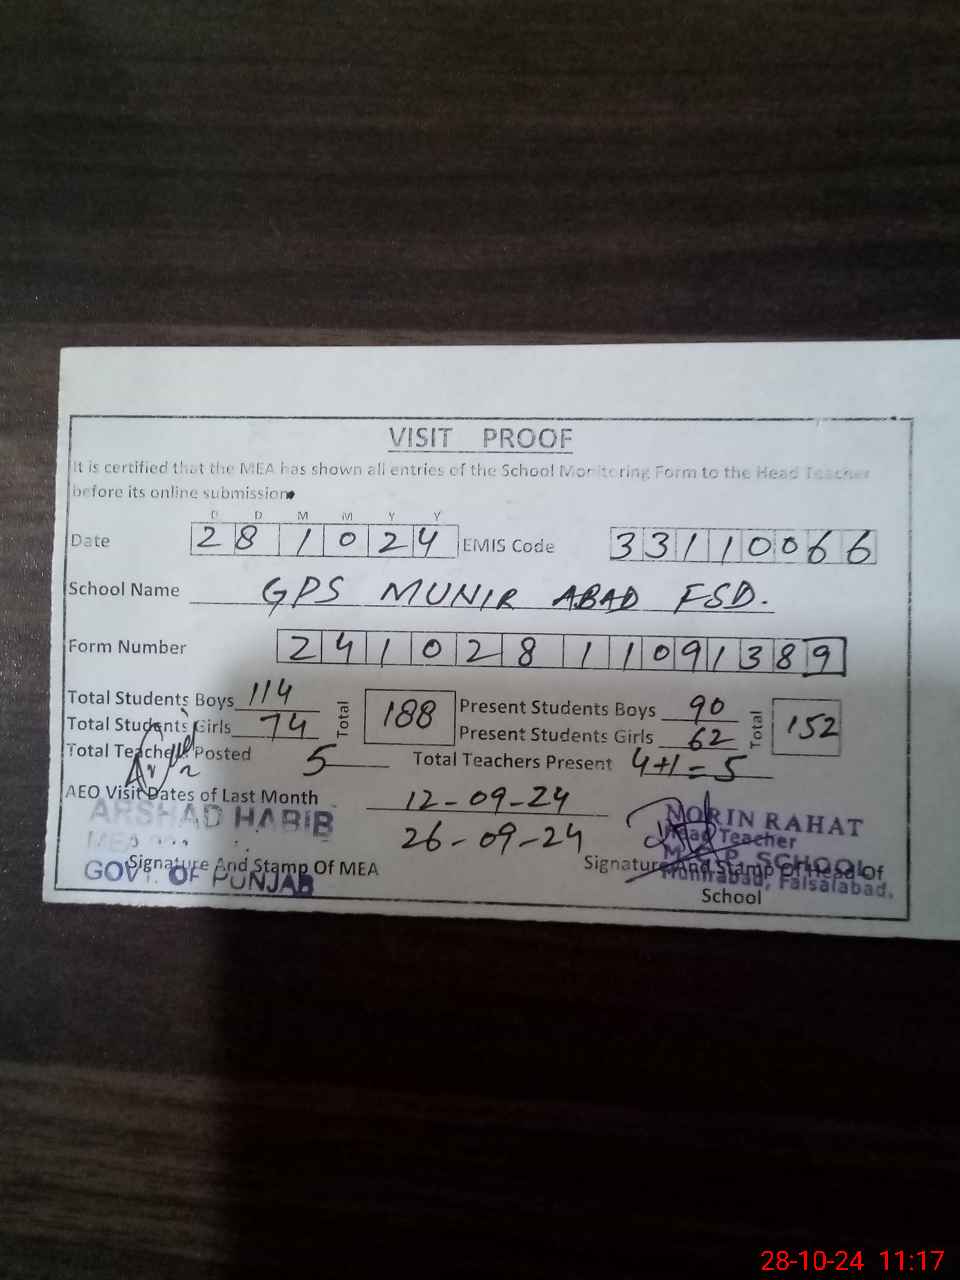 VISIT PROOF
It is certified that the MEA has shown all entries of the School Monitering Form to the Head Teacher
before its online submission.
D D M M Y Y
Date 28 10 24 EMIS Code 33110066
School Name GPS MUNIR ABAD FSD.
Form Number 24102811091389
Total Students Boys 114 Total 188 Present Students Boys 90 Total 152
Total Students Girls 74 Present Students Girls 62
Total Teachers Posted 5 Total Teachers Present 4+1=5
AEO Visit Dates of Last Month 12-09-24
26-09-24
ARSHAD HABIB
MEA
GOVT. OF PUNJAB
Signature And Stamp Of MEA
NORIN RAHAT
Head Teacher
SCHOOL
Munirabad, Faisalabad.
Signature And Stamp Of Head Of
School
28-10-24 11:17